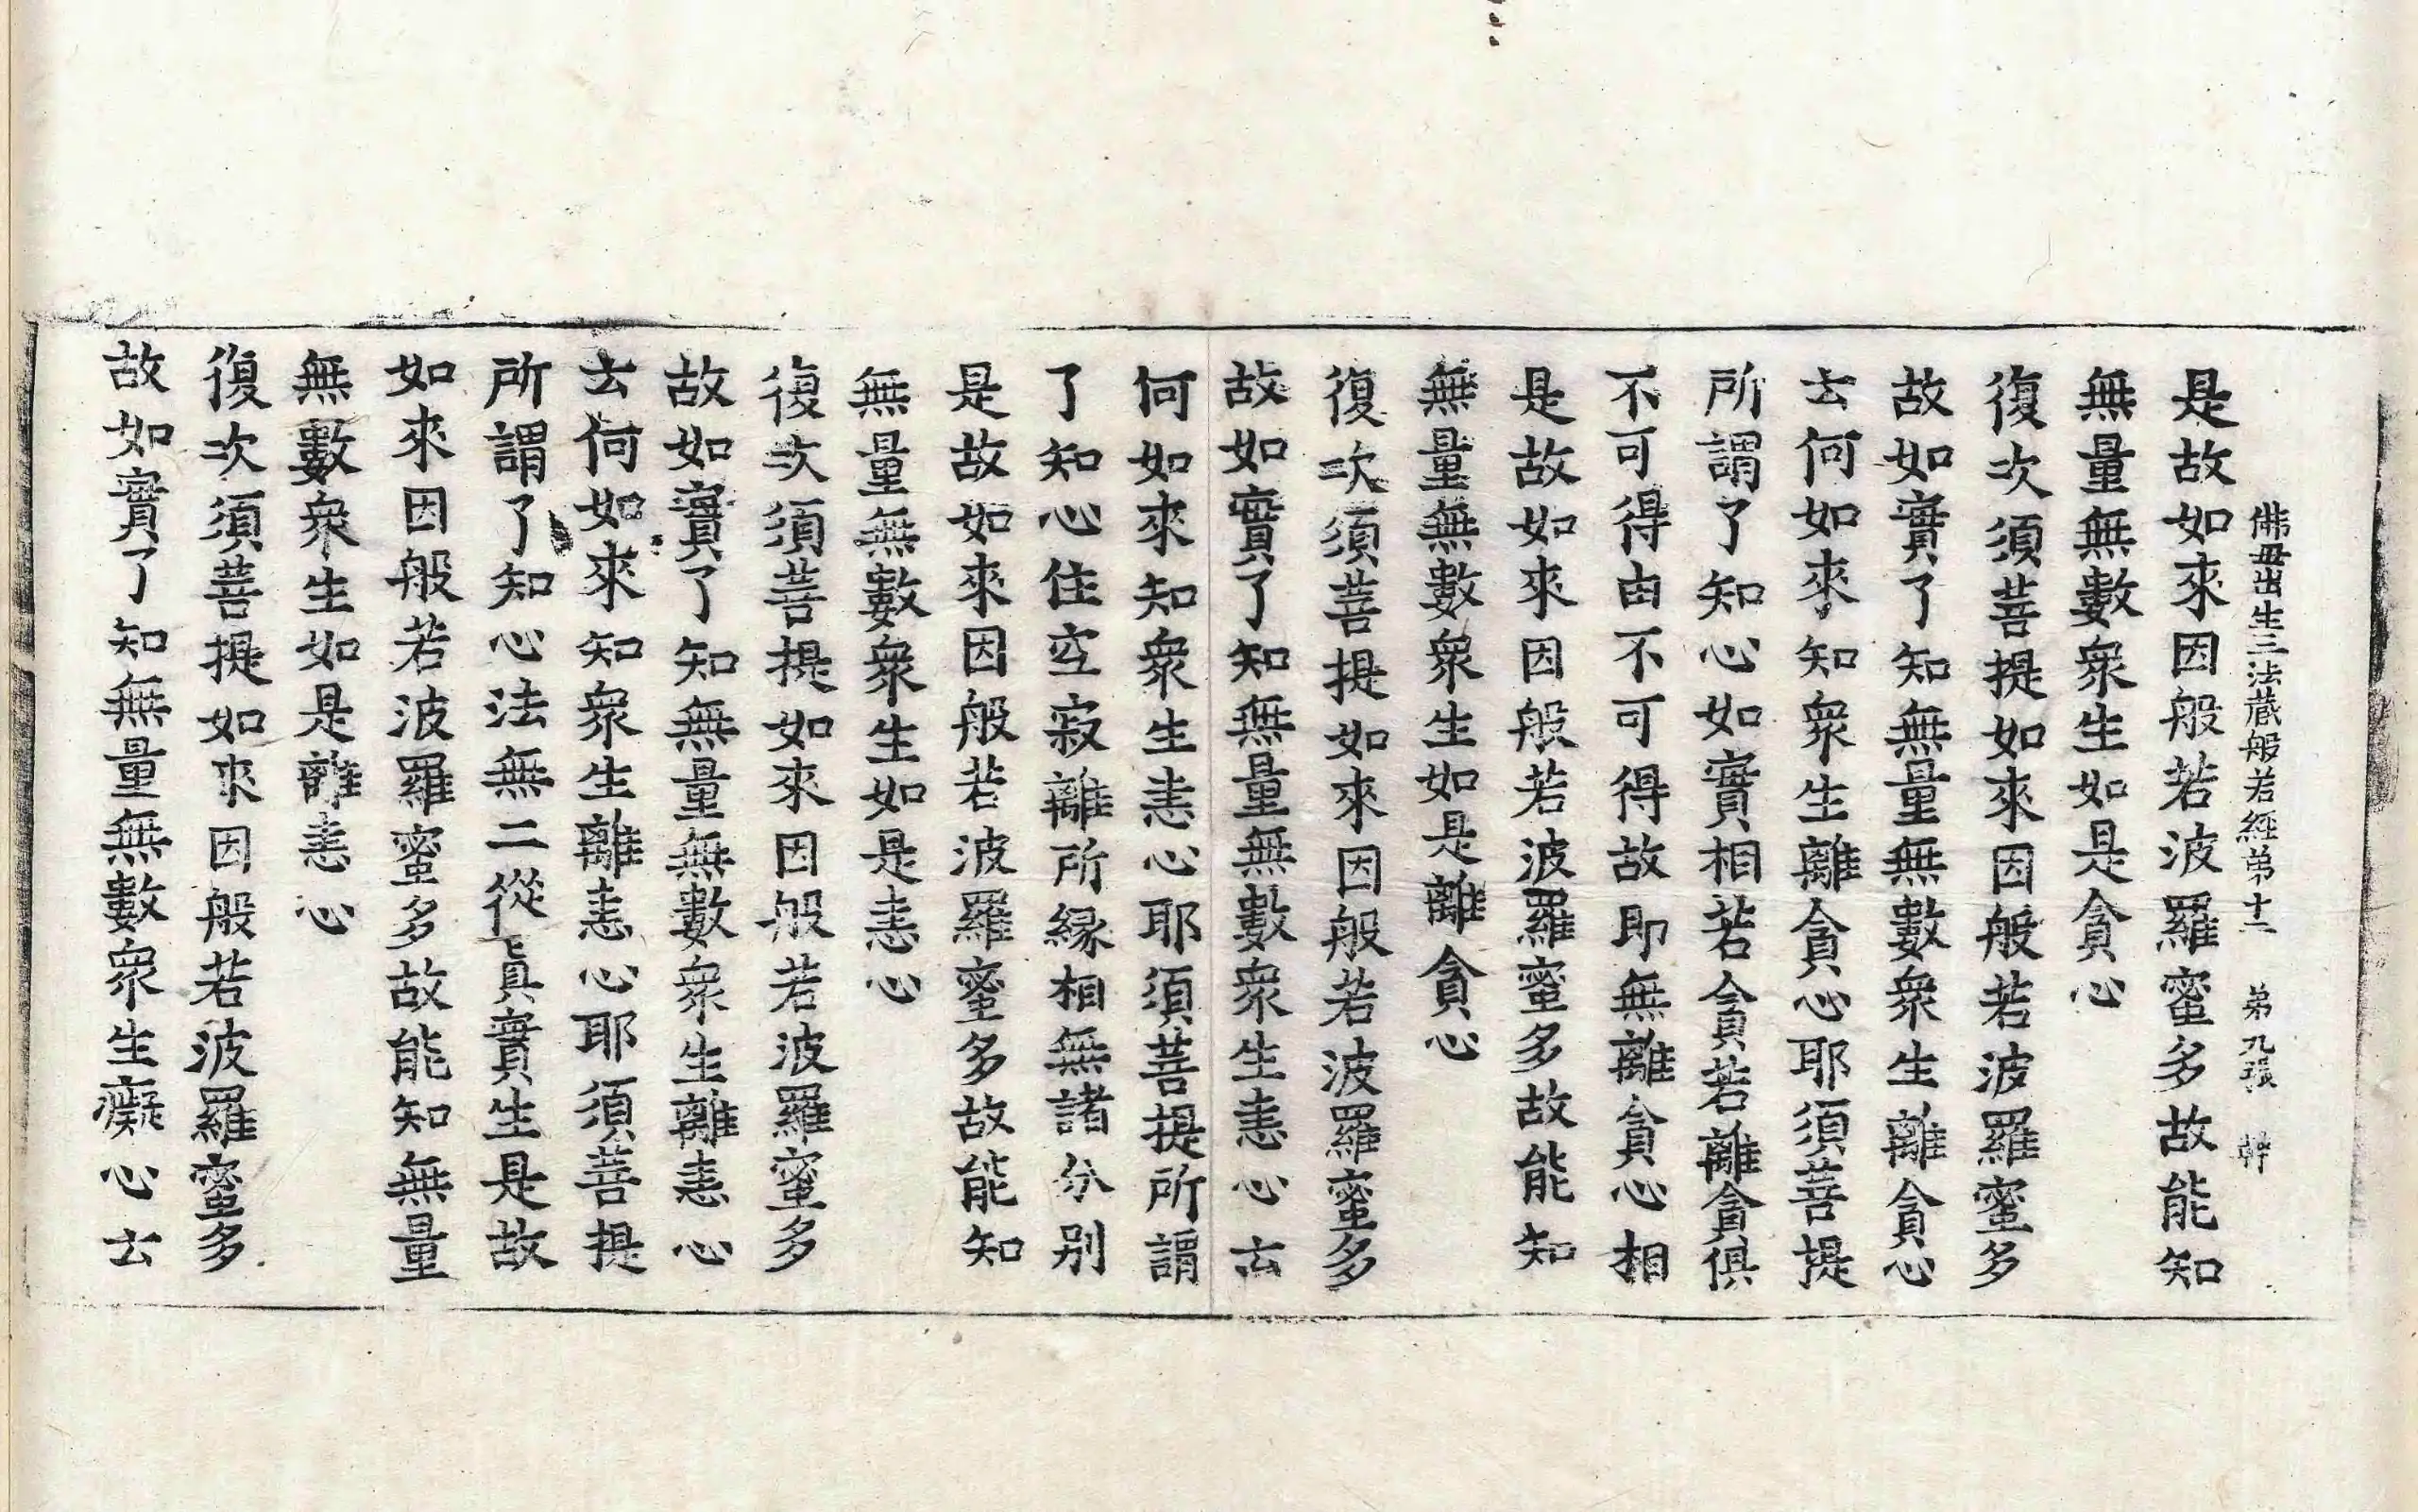 佛母出生三法藏般若經苐十二 苐九張 幹
是故如來因般若波羅蜜多故能知
無量無數衆生如是貪心
復次須菩提如來因般若波羅蜜多
故如實了知無量無數衆生離貪心
云何如來知衆生離貪心耶須菩提
所謂了知心如實相若貪若離貪俱
不可得由不可得故即無離貪心相
是故如來因般若波羅蜜多故能知
無量無數衆生如是離貪心
復次須菩提如來因般若波羅蜜多
故如實了知無量無數衆生恚心云
何如來知衆生恚心耶須菩提所謂
了知心住空寂離所緣相無諸分別
是故如來因般若波羅蜜多故能知
無量無數衆生如是恚心
復次須菩提如來因般若波羅蜜多
故如實了知無量無數衆生離恚心
云何如來知衆生離恚心耶須菩提
所謂了知心法無二從眞實生是故
如來因般若波羅蜜多故能知無量
無數衆生如是離恚心
復次須菩提如來因般若波羅蜜多
故如實了知無量無數衆生癡心云